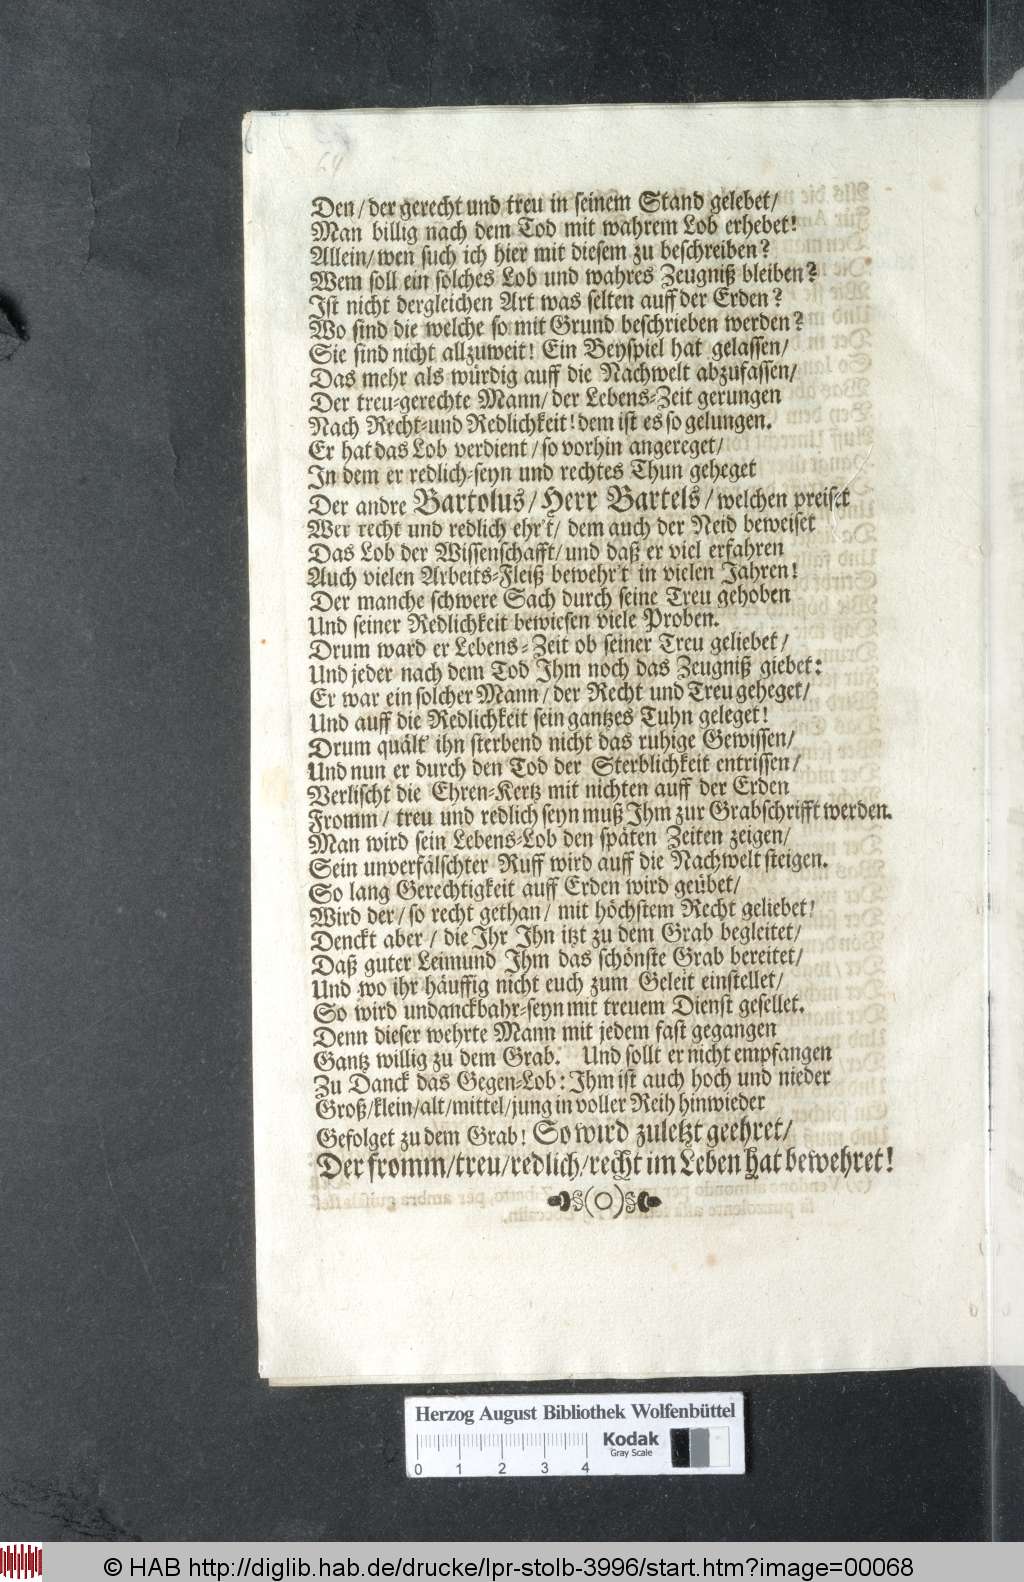 64
Den / der gerecht und treu in seinem Stand gelebet /
Man billig nach dem Tod mit wahrem Lob erhebet!
Allein / wen such ich hier mit diesem zu beschreiben?
Wem soll ein solches Lob und wahres Zeugniß bleiben?
Ist nicht dergleichen Art was selten auff der Erden?
Wo sind die welche so mit Grund beschrieben werden?
Sie sind nicht allzuweit! Ein Beyspiel hat gelassen /
Das mehr als würdig auff die Nachwelt abzufassen /
Der treu-gerechte Mann / der Lebens-Zeit gerungen
Nach Recht-und Redlichkeit! dem ist es so gelungen.
Er hat das Lob verdient / so vorhin angereget /
In dem er redlich-seyn und rechtes Thun geheget
Der andre Bartolus / Herr Bartels / welchen preiset
Wer recht und redlich ehr't / dem auch der Neid beweiset
Das Lob der Wissenschafft / und daß er viel erfahren
Auch vielen Arbeits-Fleiß bewehr't in vielen Jahren!
Der manche schwere Sach durch seine Treu gehoben
Und seiner Redlichkeit bewiesen viele Proben.
Drum ward er Lebens-Zeit ob seiner Treu geliebet /
Und jeder nach dem Tod Ihm noch das Zeugniß giebet:
Er war ein solcher Mann / der Recht und Treu geheget /
Und auff die Redlichkeit sein gantzes Tuhn geleget!
Drum quält' ihn sterbend nicht das ruhige Gewissen /
Und nun er durch den Tod der Sterblichkeit entrissen /
Verlischt die Ehren-Kertz mit nichten auff der Erden
Fromm / treu und redlich seyn muß Ihm zur Grabschrifft werden.
Man wird sein Lebens-Lob den späten Zeiten zeigen /
Sein unverfälschter Ruff wird auff die Nachwelt steigen.
So lang Gerechtigkeit auff Erden wird geübet /
Wird der / so recht gethan / mit höchstem Recht geliebet!
Denckt aber / die Ihr Ihn itzt zu dem Grab begleitet /
Daß guter Leimund Ihm das schönste Grab bereitet /
Und wo ihr häuffig nicht euch zum Geleit einstellet /
So wird undanckbahr-seyn mit treuem Dienst gesellet.
Denn dieser wehrte Mann mit jedem fast gegangen
Gantz willig zu dem Grab. Und sollt er nicht empfangen
Zu Danck das Gegen-Lob: Ihm ist auch hoch und nieder
Groß / klein / alt / mittel / jung in voller Reih hinwieder
Gefolget zu dem Grab! So wird zuletzt geehret /
Der fromm / treu / redlich / recht im Leben hat bewehret!
Herzog August Bibliothek Wolfenbüttel
Kodak
Gray Scale
0 1 2 3 4
© HAB http://diglib.hab.de/drucke/lpr-stolb-3996/start.htm?image=00068